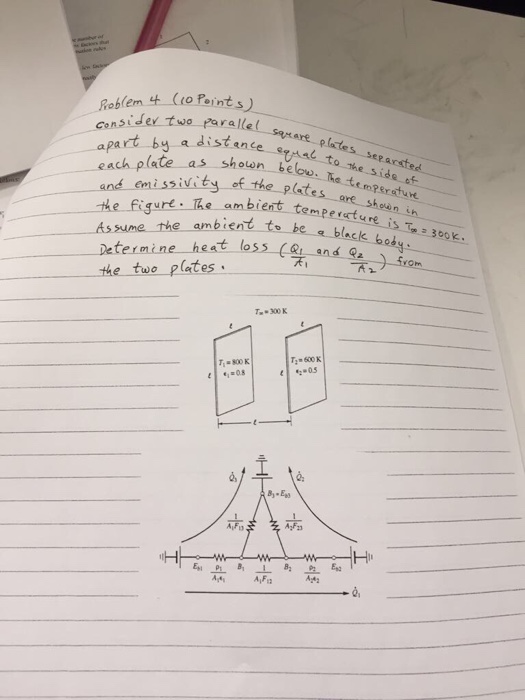 Problem 4 (10 Points)
Consider two parallel square plates separated
apart by a distance equal to the side of
each plate as shown below. The temperature
and emissivity of the plates are shown in
the figure. The ambient temperature is T∞ = 300K.
Assume the ambient to be a black body.
Determine heat loss (Q1/A1 and Q2/A2) from
the two plates.
T∞ = 300 K
ℓ ℓ
T1 = 800 K T2 = 600 K
ℓ ε1 = 0.8 ℓ ε2 = 0.5
ℓ
Q̇3 Q̇2
B3 = Eb3
1/A1F13 1/A2F23
Eb1 ρ1/A1ε1 B1 1/A1F12 B2 ρ2/A2ε2 Eb2
Q̇1